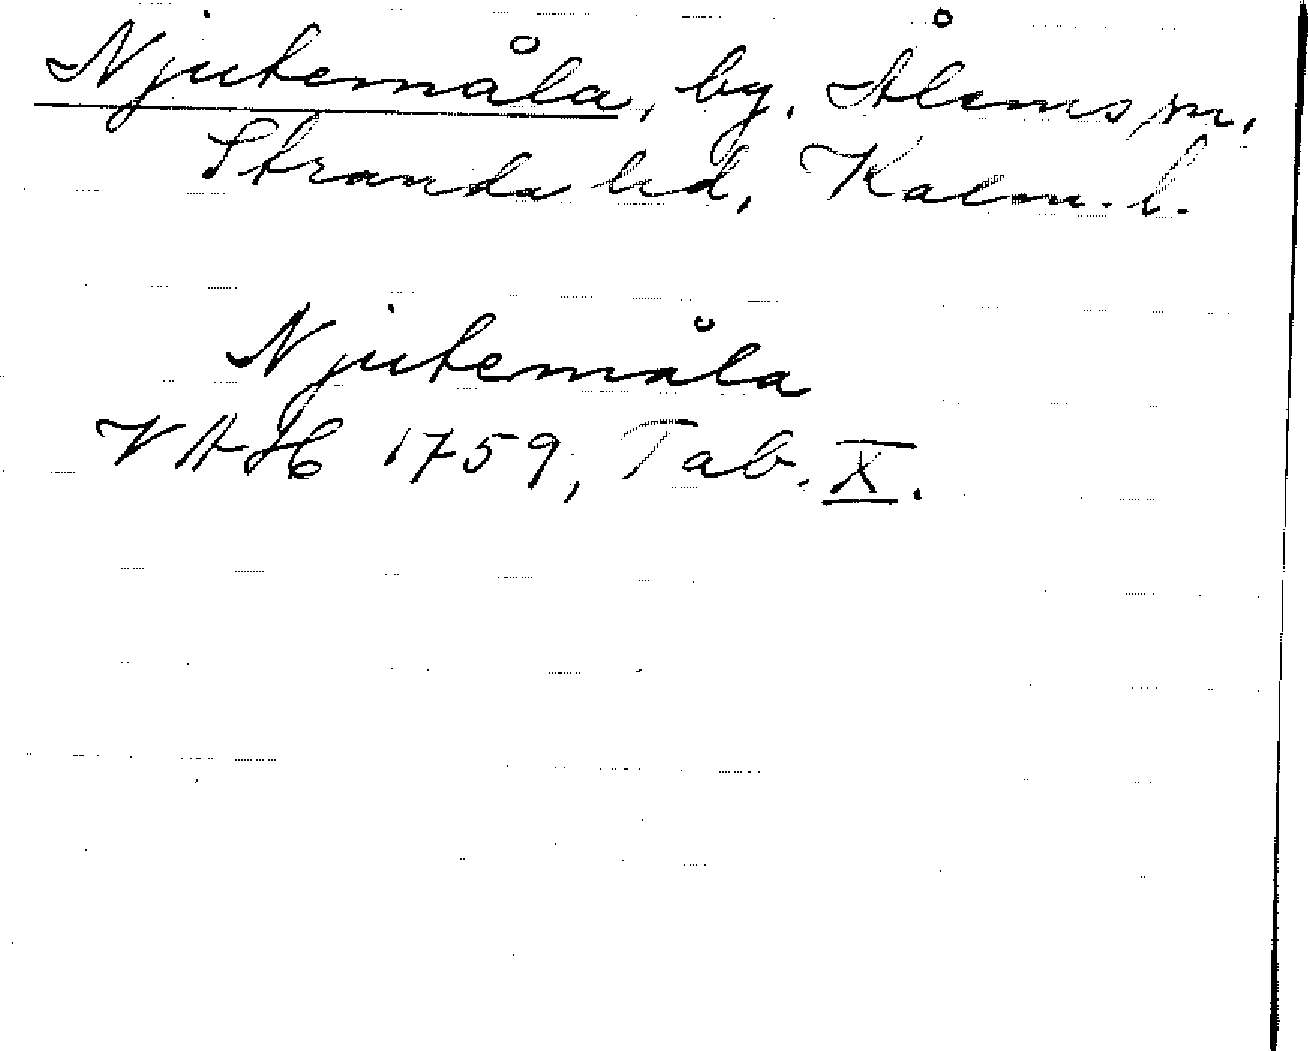 Njutemåla, by, Ålems sn,
Stranda hd, Kalm. l.
Njutemåla
VAH 1759, Tab. X.